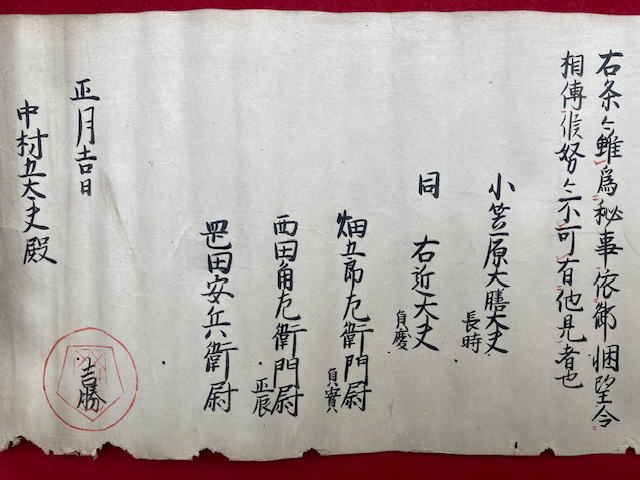 右条々雖為秘事依御悃望令
相傳候努々不可有他見者也
小笠原大膳大夫
長時
同 右近大夫
貞慶
畑五郎左衛門尉
貞實
西田角左衛門尉
正辰
田安兵衛尉
正月吉日
中村五大夫殿
吉勝